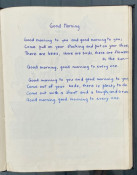 Good Morning
Good morning to you and good morning to you,
Come pull on your clothing and put on your shoes,
There are birds, there are birds, there are flowers
in the sun
Good morning, good morning to every one.
Good morning to you and good morning to you
Come out of your beds, there is plenty to do
Come out with a shout and a laugh and a
Good morning, good morning to every one